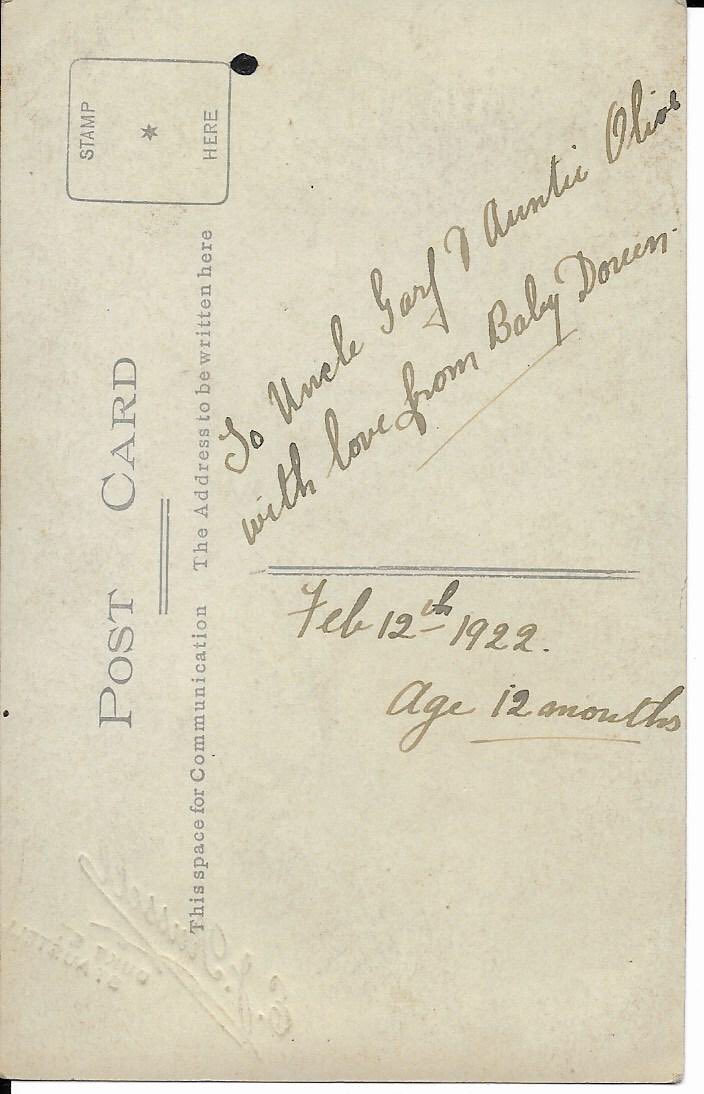 POST CARD
STAMP
HERE
This space for Communication
The Address to be written here
To Uncle Garf & Auntie Olive
with love from Baby Doreen.
Feb 12th 1922.
Age 12 months
DUKE ST
ST. AUSTELL